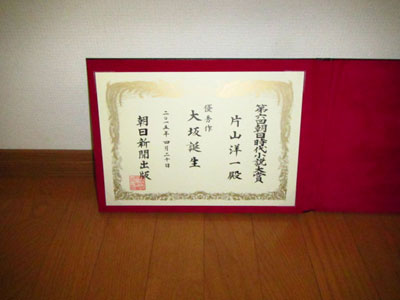 第六回朝日時代小説大賞
片山洋一殿
優秀作
大坂誕生
二〇一五年四月二十日
朝日新聞出版